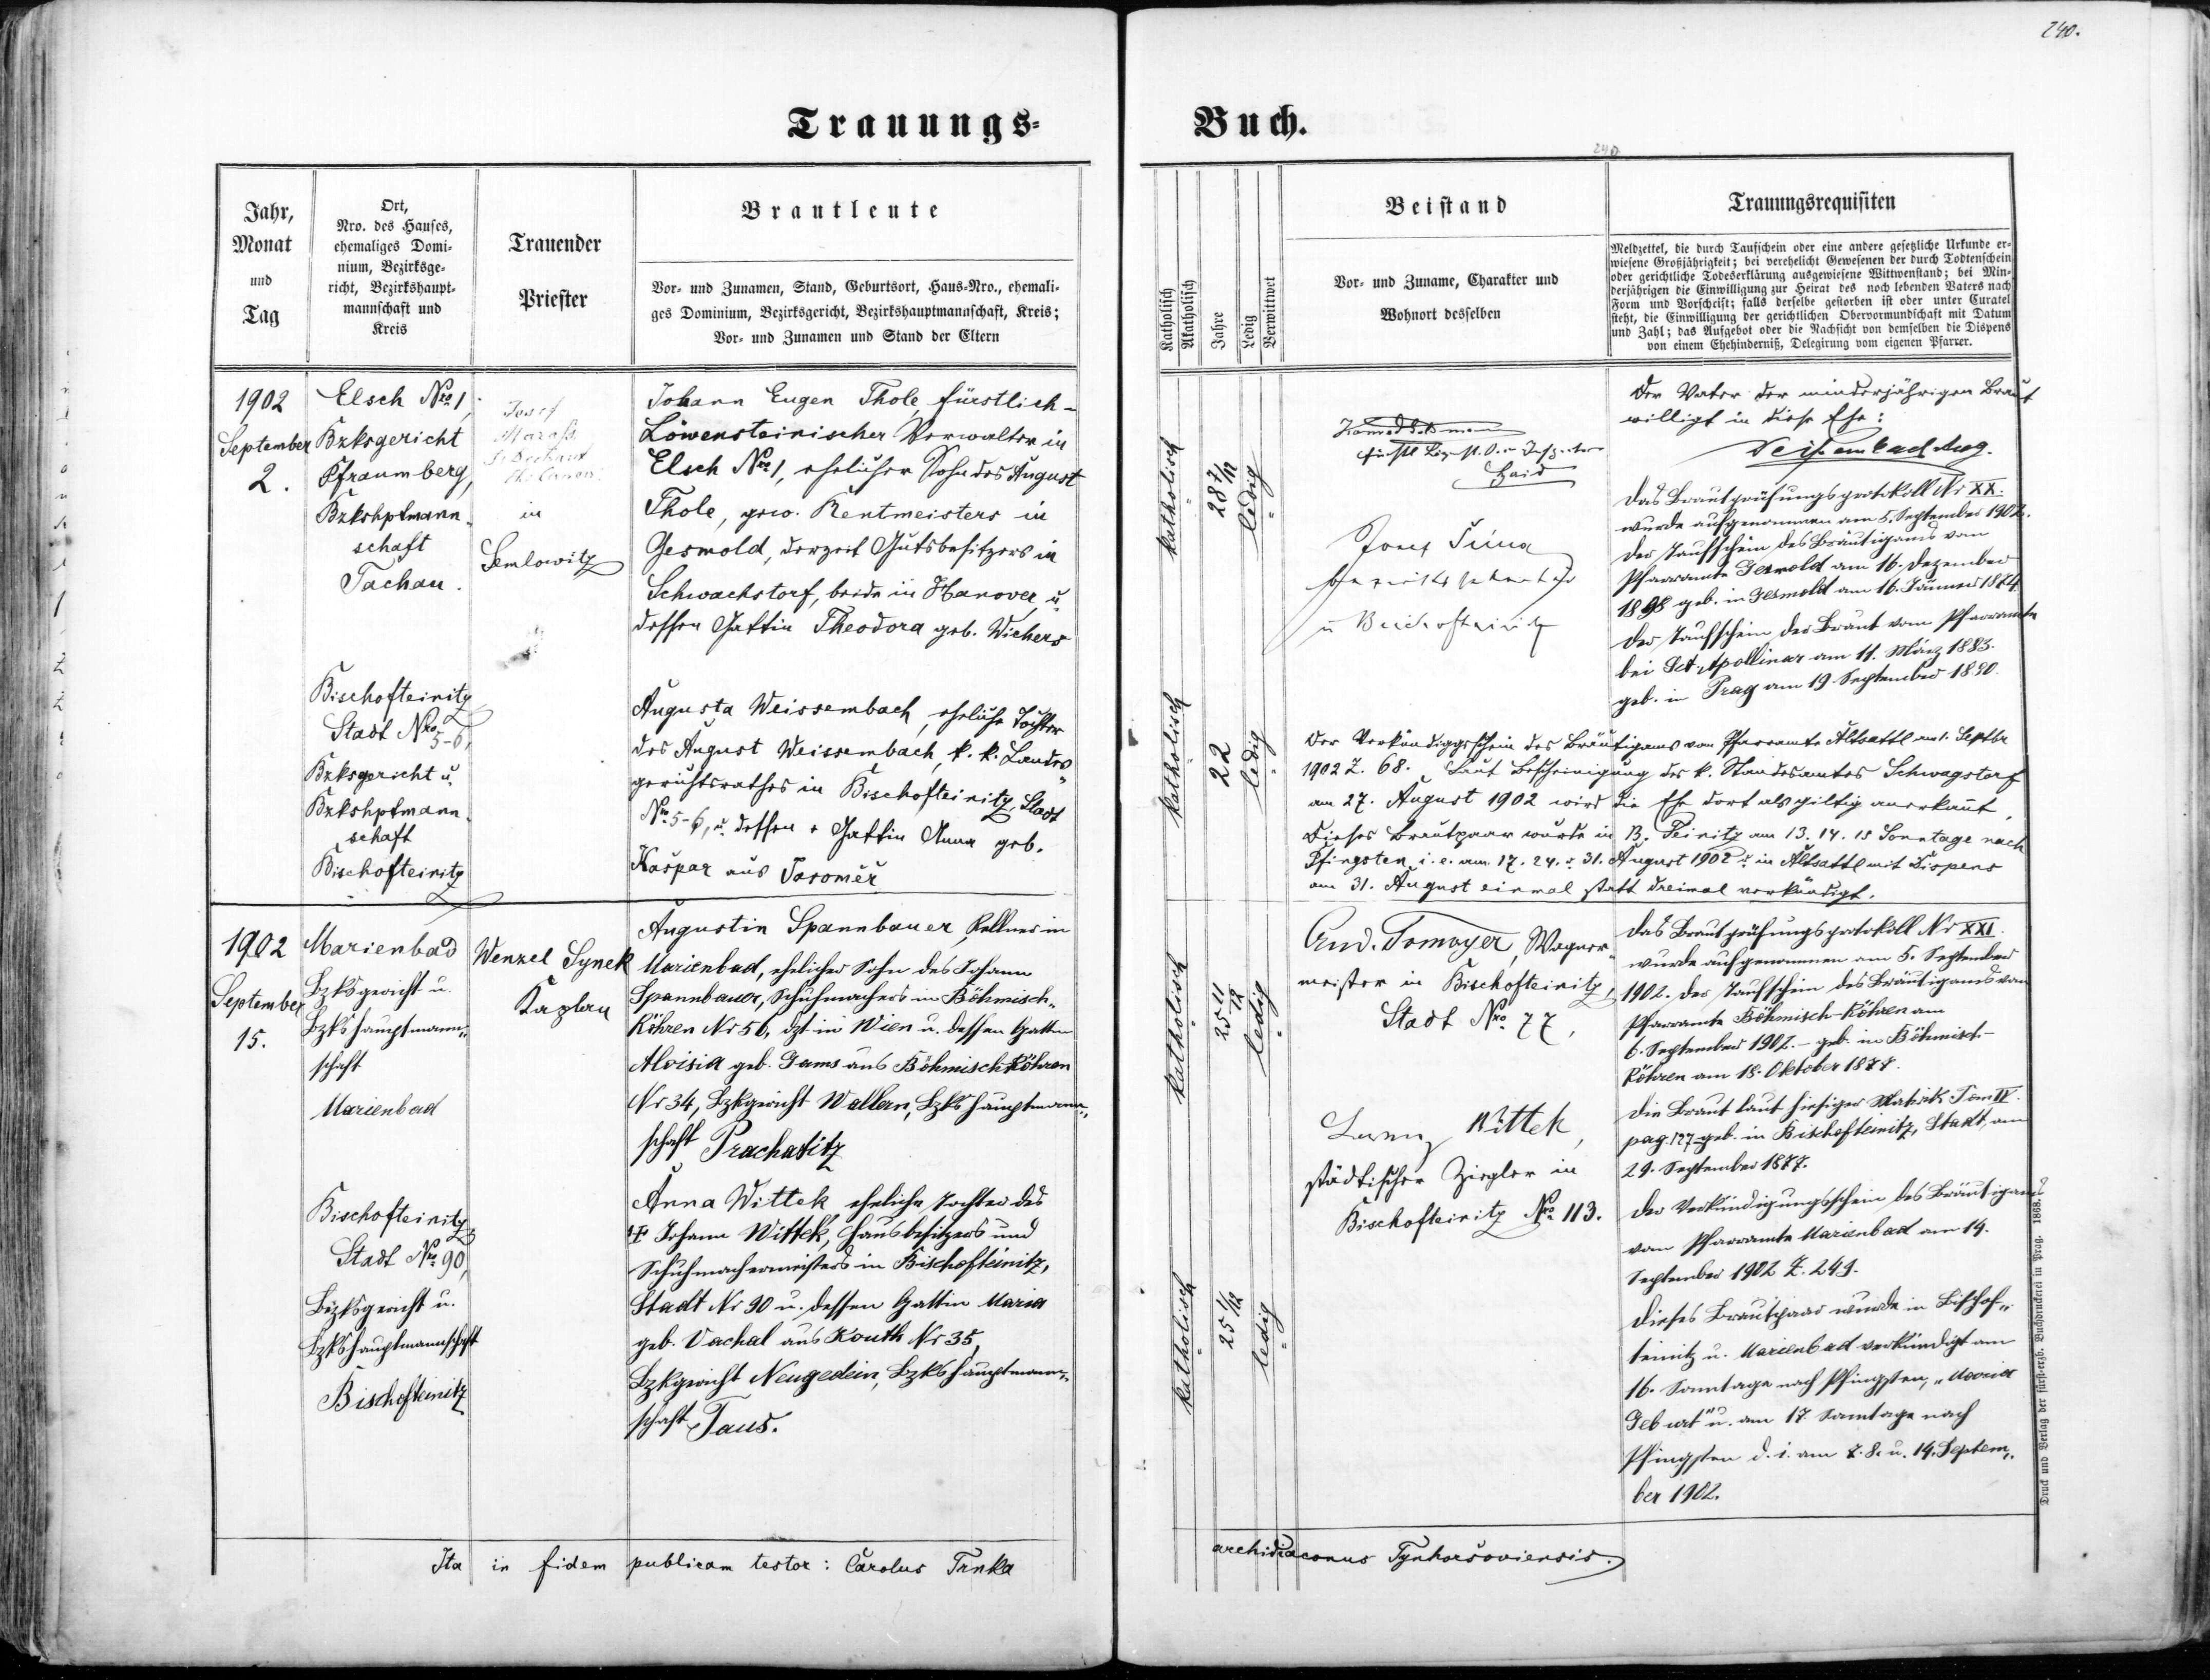 240.
Trauungs-
Buch.
240
Jahr,
Monat
und
Tag
Ort,
Nro. des Hauses,
ehemaliges Domi-
nium, Bezirksge-
richt, Bezirkshaupt-
mannschaft und
Kreis
Trauender
Priester
Brautleute
Vor- und Zunamen, Stand, Geburtsort, Haus-Nro., ehemali-
ges Dominium, Bezirksgericht, Bezirkshauptmannschaft, Kreis;
Vor- und Zunamen und Stand der Eltern
Katholisch
Akatholisch
Jahre
Ledig
Verwittwet
Beistand
Vor- und Zuname, Charakter und
Wohnort desselben
Trauungsrequisiten
Meldzettel, die durch Taufschein oder eine andere gesetzliche Urkunde er-
wiesene Großjährigkeit; bei verehelicht Gewesenen der durch Todtenschein
oder gerichtliche Todeserklärung ausgewiesene Wittwenstand; bei Min-
derjährigen die Einwilligung zur Heirat des noch lebenden Vaters nach
Form und Vorschrift; falls derselbe gestorben ist oder unter Curatel
steht, die Einwilligung der gerichtlichen Obervormundschaft mit Datum
und Zahl; das Aufgebot oder die Nachsicht von demselben die Dispens
von einem Ehehinderniß, Delegirung vom eigenen Pfarrer.
1902
September
2.
Elsch Nro 1,
Bzksgericht
Pfraumberg,
Bzkshptmann-
schaft
Tachau.
Josef
Maraß
in
Semlowitz
Johann Eugen Thole, fürstlich-
Löwensteinischer Verwalter in
Elsch Nro 1, ehelicher Sohn des August
Thole, gew. Rentmeisters in
Gesmold, derzeit Gutsbesitzers in
Schwachstorf, beide in Hanover, u.
dessen Gattin Theodora geb. Wichers
Bischofteinitz
Stadt Nro 5-6,
Bzksgericht u.
Bzkshptmann-
schaft
Bischofteinitz
Augusta Weissembach, eheliche Tochter
des August Weissembach, k. k. Landes-
gerichtsrathes in Bischofteinitz, Stadt
Nro 5-6, u. dessen Gattin Anna geb.
Kašpar aus Jaroměř
katholisch
28 7/12
ledig
katholisch
22
ledig
Haid
Josef Tůma
u Bischofteinitz
Der Vater der minderjährigen Braut
willigt in diese Ehe:
Weissembach Aug.
Das Brautprüfungsprotokoll Nr XX.
wurde aufgenommen am 5. September 1902.
Der Taufschein des Bräutigams vom
Pfarramte Gesmold am 16. Dezember
1898 geb. in Gesmold am 16. Jänner 1874.
Der Taufschein der Braut vom Pfarramte
bei Sct. Apollinar am 11. März 1883.
geb. in Prag am 19. September 1880.
Der Verkündiggsschein des Bräutigams vom Pfarramte Altsattl am 1. Septbr
1902 Z. 68. Laut Bescheinigung des k. Standesamtes Schwagstorf
am 27. August 1902 wird die Ehe dort als giltig anerkannt.
Dieses Brautpaar wurde in B. Teinitz am 13. 14. 15 Sonntage nach
Pfingsten i. e. am 17. 24. u. 31. August 1902 u. in Altsattl mit Dispens
am 31. August einmal statt dreimal verkündigt.
1902
September
15.
Marienbad
Bzksgericht u.
Bzkshauptmann-
schaft
Marienbad
Wenzel Synek
Kaplan
Augustin Spannbauer, Kellner in
Marienbad, ehelicher Sohn des Johann
Spannbauer, Schuhmachers in Böhmisch-
Röhren Nr 56, dzt. in Wien u. dessen Gattin
Aloisia geb. Gams aus Böhmisch-Röhren
Nr 34, Bzkgericht Wallern, Bzkshauptmann-
schaft Prachatitz
Bischofteinitz
Stadt Nro 90,
Bezksgericht u.
Bzkshauptmannschaft
Bischofteinitz
Anna Wittek, eheliche Tochter des
Johann Wittek, Hausbesitzers und
Schuhmachermeisters in Bischofteinitz,
Stadt Nr 90 u. dessen Gattin Maria
geb. Vachal aus Kouth Nr 35,
Bzkgericht Neugedein, Bzkshauptmann-
schaft Taus.
katholisch
25 11/12
ledig
katholisch
25 1/12
ledig
And. Tomayer, Wagner-
meister in Bischofteinitz,
Stadt Nro 77,
Lorenz Wittek,
städtischer Ziegler in
Bischofteinitz Nro 113.
Das Brautprüfungsprotokoll Nr XXI.
wurde aufgenommen am 5. September
1902. Der Taufschein des Bräutigams vom
Pfarramte Böhmisch-Röhren am
6. September 1902. – geb. in Böhmisch-
Röhren am 18. Oktober 1877.
Die Braut laut hiesiger Matrik Tom IV.
pag. 127 geb. in Bischofteinitz, Stadt, am
29. September 1877.
Der Verkündigungsschein des Bräutigams
vom Pfarramte Marienbad am 14.
September 1902 Z. 249.
Dieses Brautpaar wurde in Bischof-
teinitz u. Marienbad verkündigt am
16. Sonntage nach Pfingsten, „Mariä
Geburt" u. am 17. Sonntage nach
Pfingsten d. i. am 7. 8. u. 14. Septem-
ber 1902.
Druck und Verlag der fürsterzb. Buchdruckerei in Prag. 1868.
Ita in fidem publicam testor: Carolus Trnka
archidiaconus Tynhoršoviensis.